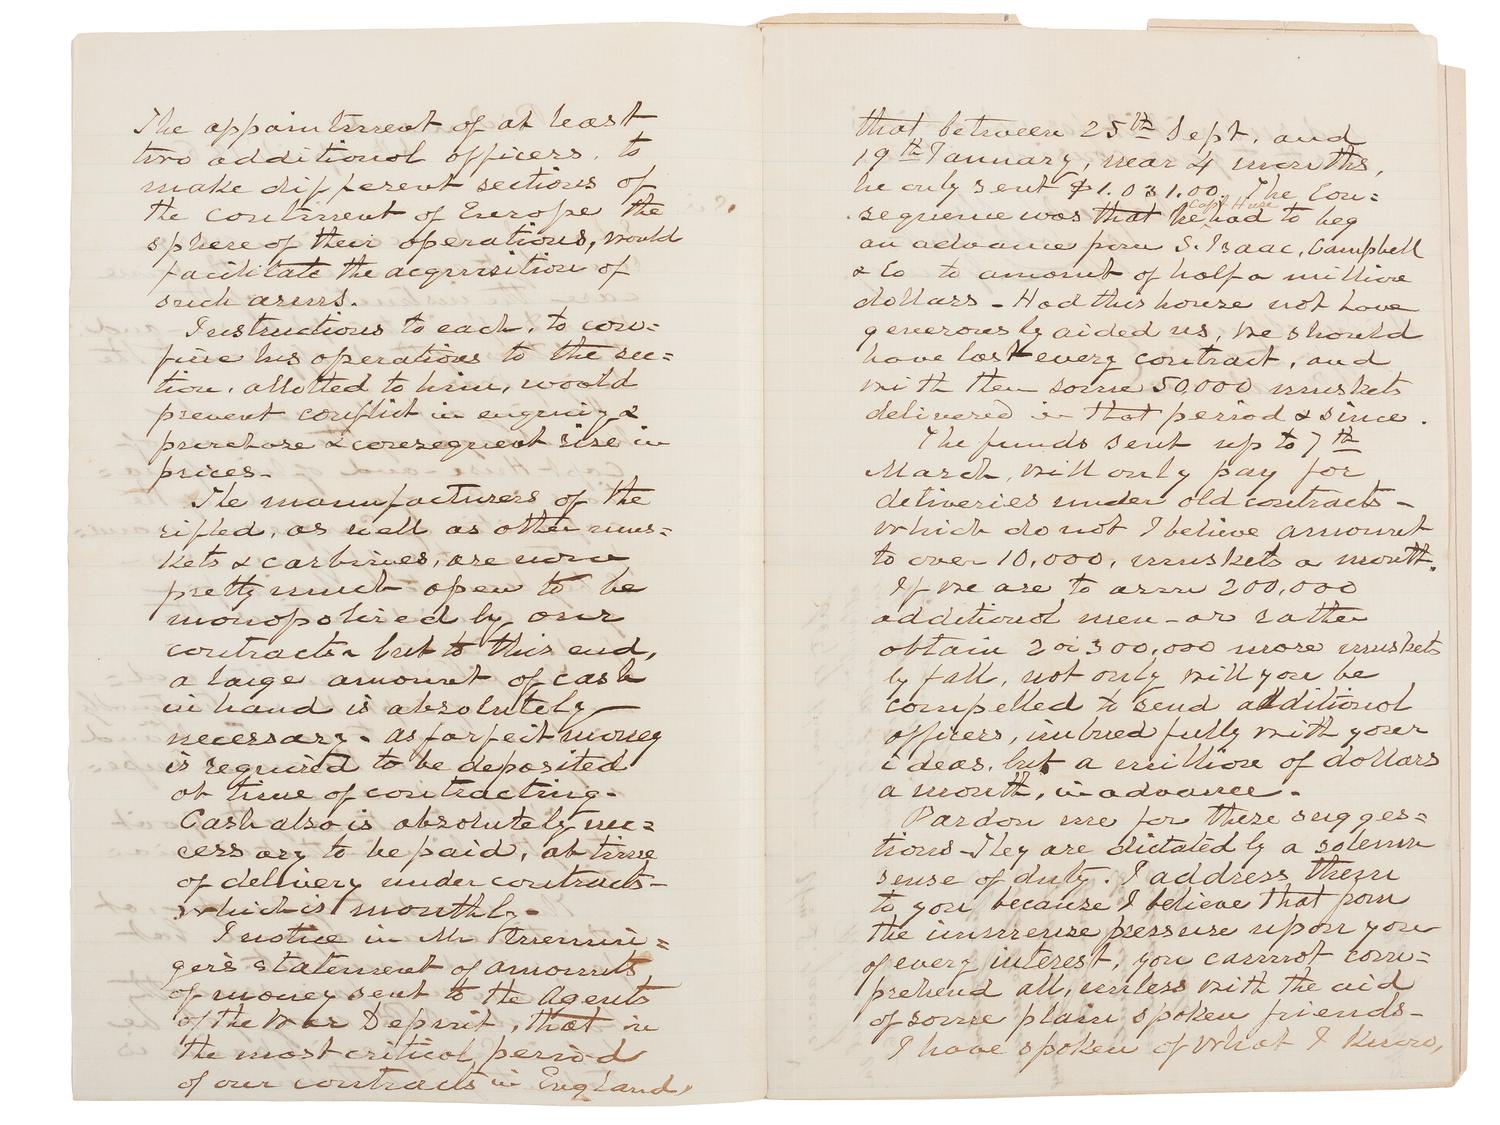 The appointment of at least
two additional officers, to
make different sections of
the continent of Europe the
sphere of their operations, would
facilitate the acquisition of
such arms.
Instructions to each, to con=
fine his operations to the sec=
tion, allotted to him, would
prevent conflict in enquiry &
purchase & consequent rise in
prices-
The manufacturers of the
rifled, as well as other mus=
kets & carbines, are now
pretty much open to be
monopolized by our
contracts but to this end,
a large amount of cash
in hand is absolutely
necessary. as forfeit money
is required to be deposited
at time of contracting-
Cash also is absolutely nec=
essary to be paid, at time
of delivery under contracts-
which is monthly-
I notice in Mr Memmin=
gers statement of amounts
of money sent to the Agents
of the War Depmt, that in
the most critical period
of our contracts in England,
that between 25th Sept. and
19th January, near 4 months,
he only sent $1.031.00. The Con=
sequence was that he Capt Huse had to beg
an advance from S. Isaac, Campbell
& Co to amount of half a million
dollars - Had this house not have
generously aided us, we should
have lost every contract, and
with them some 50,000 muskets
delivered in that period & since.
The funds sent up to 7th
March, will only pay for
deliveries under old contracts-
which do not I believe amount
to over 10,000, muskets a month.
If we are to arm 200,000
additional men - or rather
obtain 2 or 300,000 more muskets
by fall, not only will you be
compelled to send additional
officers, imbued fully with your
ideas, but a million of dollars
a month, in advance.
Pardon me for these sugges=
tions - They are dictated by a solemn
sense of duty. I address them
to you because I believe that from
the immense pressure upon you
of every interest, you cannot com=
prehend all, unless with the aid
of some plain spoken friends-
I have spoken of what I know,